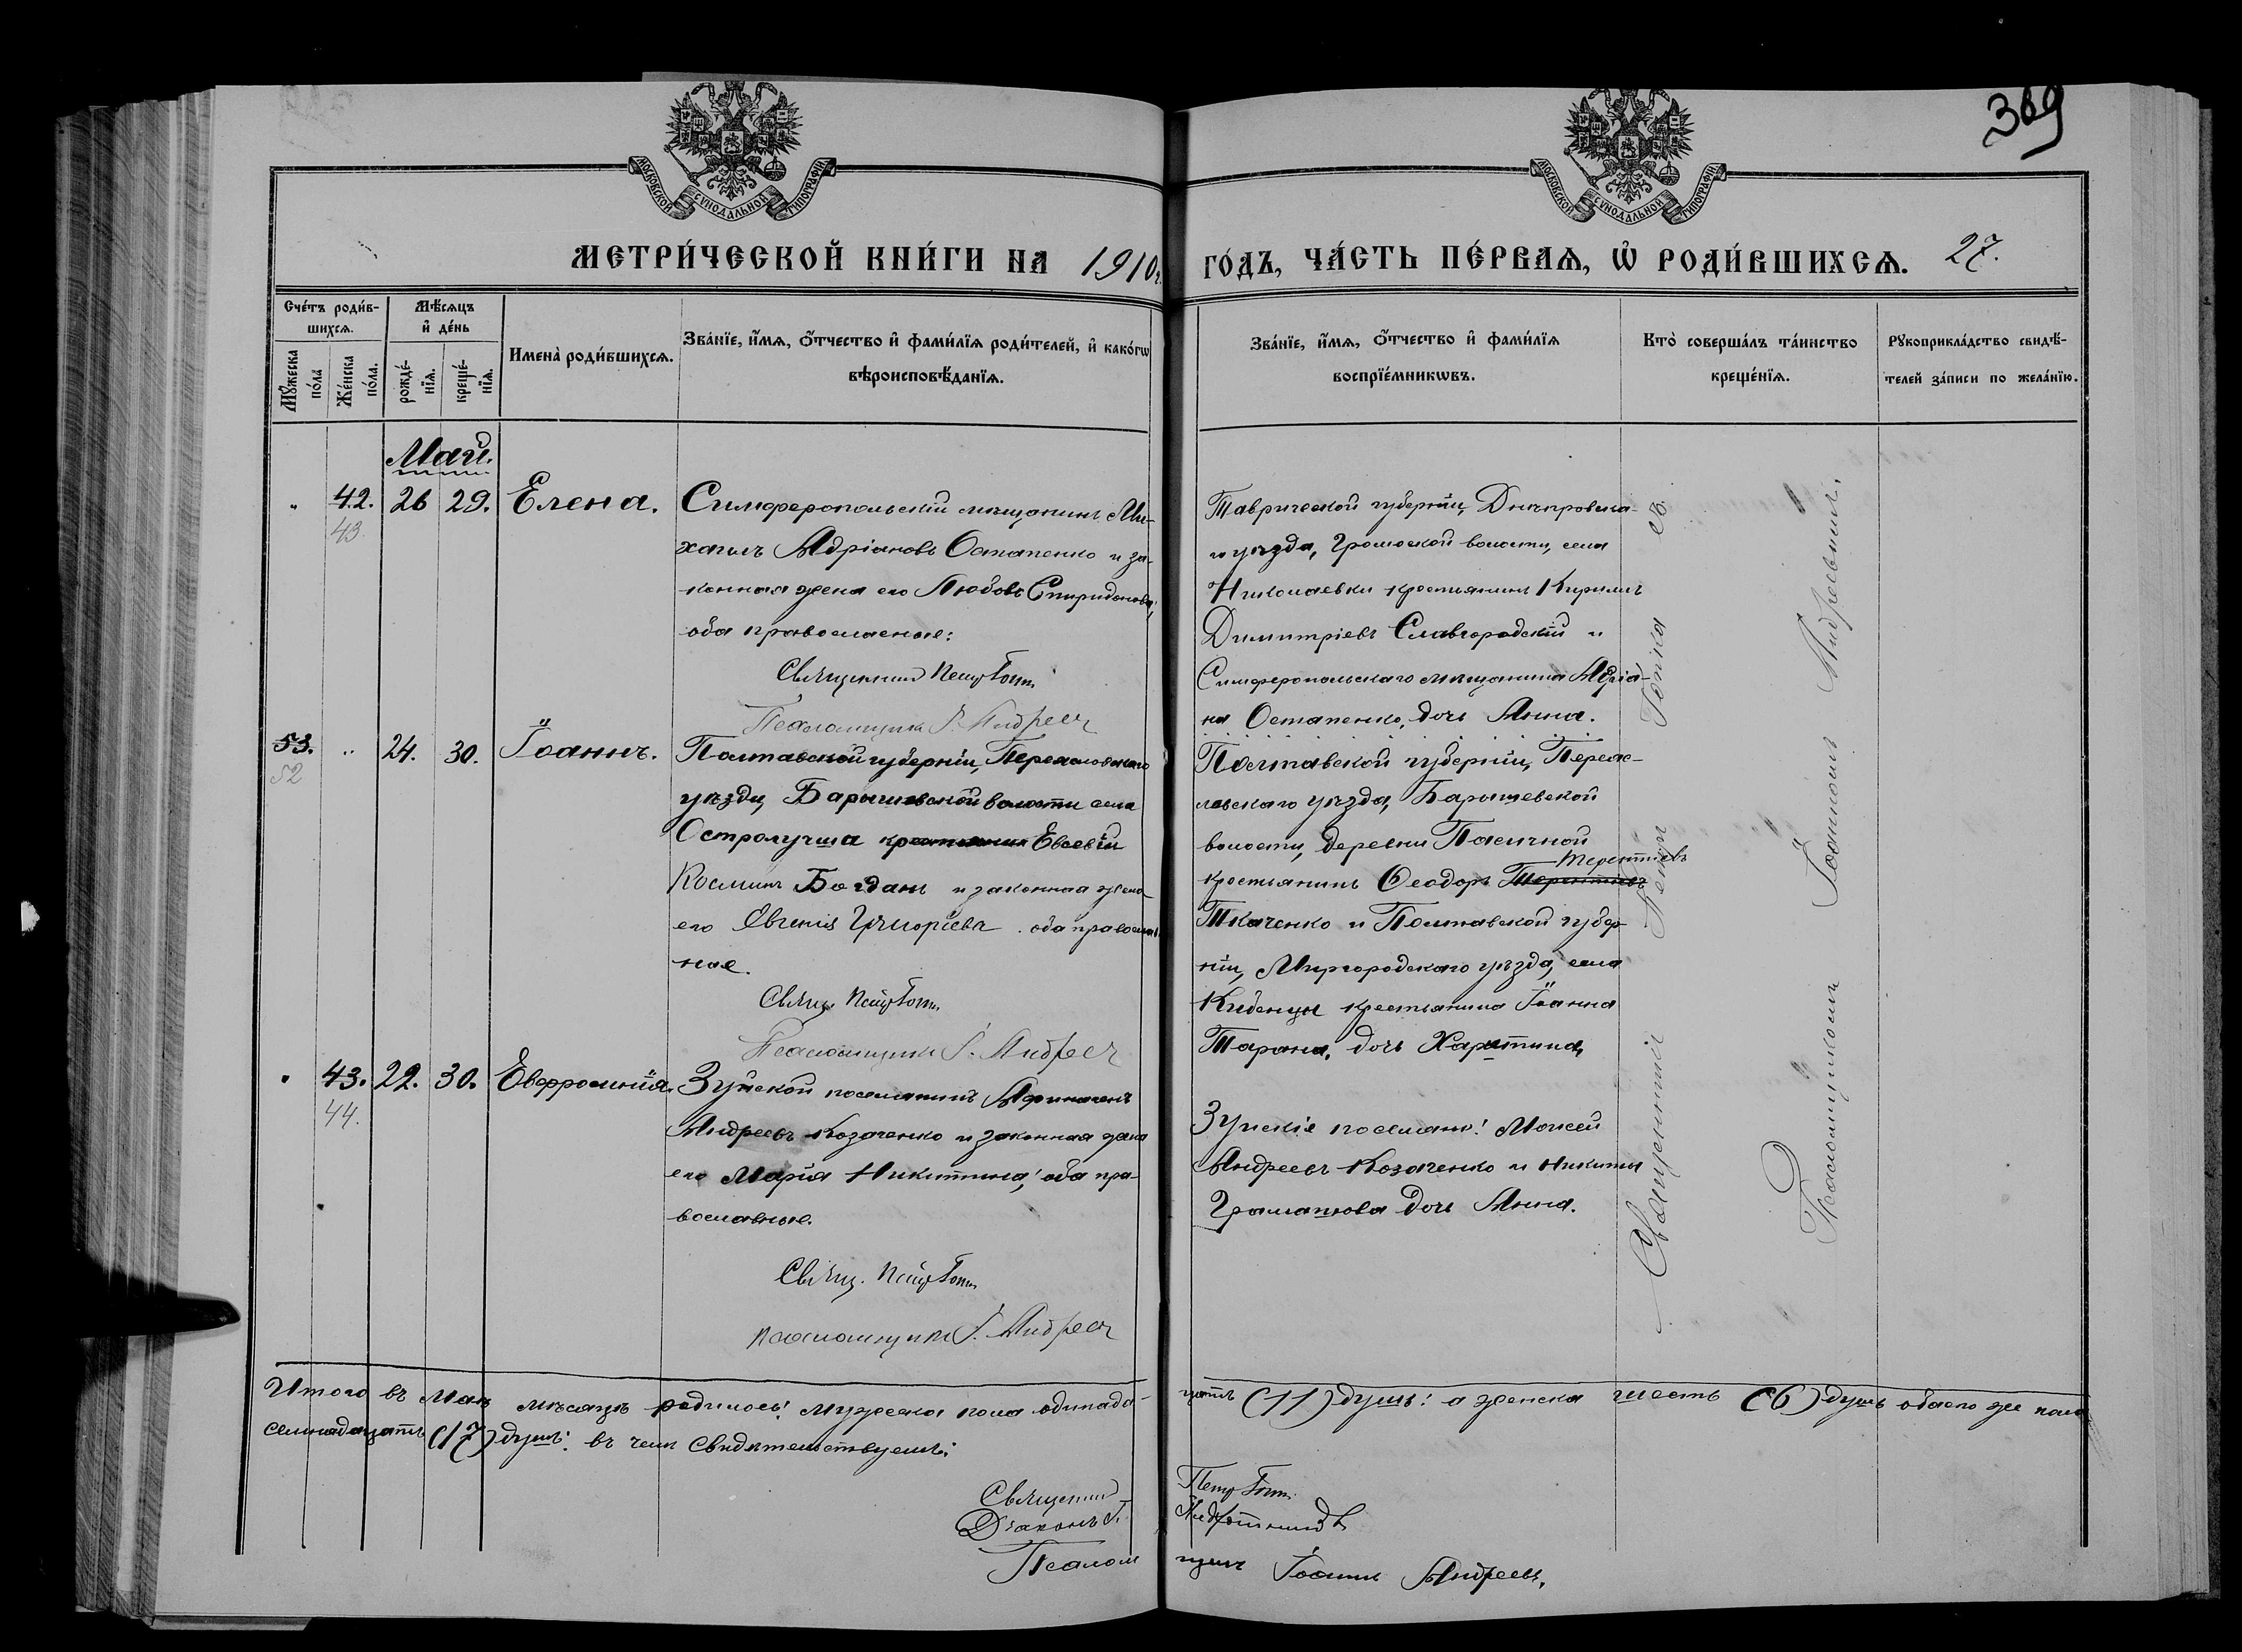 369
МОСКОВСКОЙ СУНОДАЛЬНОЙ ТИПОГРАФІИ
МОСКОВСКОЙ СУНОДАЛЬНОЙ ТИПОГРАФІИ
МЕТРИ́ЧЕСКОЙ КНИ́ГИ НА 1910 г. ГО́ДЪ, ЧА́СТЬ ПЕ́РВАЯ, Ѡ҆ РОДИ́ВШИХСЯ. 27.
Сче́тъ роди́в-
шихся.
Мѣ́сяцъ
и҆ де́нь
Мꙋ́жеска
по́ла
Же́нска
по́ла.
рожде́-
нїя.
креще́-
нїя.
Имена̀ роди́вшихся.
Зва́нїе, и҆́мя, ѻ҆́тчество и҆ фами́лїя роди́телей, и҆ како́гѡ
вѣроисповѣ́данїя.
Зва́нїе, и҆́мя, ѻ҆́тчество и҆ фами́лїя
воспрїе́мникѡвъ.
Кто̀ соверша́лъ та́инство
креще́нїя.
Рꙋкоприкла́дство свидѣ́-
телей за́писи по жела́нїю.
Май.
„ 42. 26 29. Елена.
43.
Симферопольскій мѣщанинъ Ми-
хаилъ Адріановъ Остапенко и за-
конная жена его Любовь Спиридонова,
оба православные:
Священникъ Петръ Гопк
Псаломщикъ І. Андрее
Таврической губерніи, Днѣпровска-
го уѣзда, Громовской волости, села
Николаевки крестьянинъ Кириллъ
Димитріевъ Славгородскій и
Симферопольскаго мѣщанина Адріа-
на Остапенко, дочь Анна.
53. „ 24. 30. Іоаннъ.
52
Полтавской губерніи, Переяславскаго
уѣзда, Барышевской волости села
Остролучья крестьянинъ Евсевій
Косминъ Богданъ и законная жена
его Евгенія Григоріева оба православ-
ные.
Свящ. Петръ Гопк
Псаломщикъ І. Андрее
Полтавской губерніи, Переяс-
лавскаго уѣзда, Барышевской
волости, деревни Пасичной
Терентіевъ
крестьянинъ Ѳеодоръ Терентіевъ
Ткаченко и Полтавской губер-
ніи, Миргородскаго уѣзда, села
Кибенцы крестьянина Іоанна
Тарана, дочь Харитина,
„ 43. 22. 30. Евфросинія.
44.
Зуйской поселянинъ
Андреевъ Козаченко и законная жена
его Марія Никитина, оба пра-
вославные.
Свящ. Петръ Гопк
псаломщикъ І. Андрее
Зуйскіе поселяне: Моисей
Андреевъ Козаченко и Никиты
Граматкова дочь Анна.
Священникъ Петръ
Псаломщикомъ Іоанномъ Андреевымъ.
Итого въ Маѣ мѣсяцѣ родилось: мужеска пола одинад-
цать (11) душъ: а женска шесть (6) душъ обоего же пола
семнадцать (17) душъ: въ чемъ свидѣтельствуемъ:
Священникъ Петръ Гопк
Діаконъ
Псаломщикъ Іоаннъ Андреевъ,